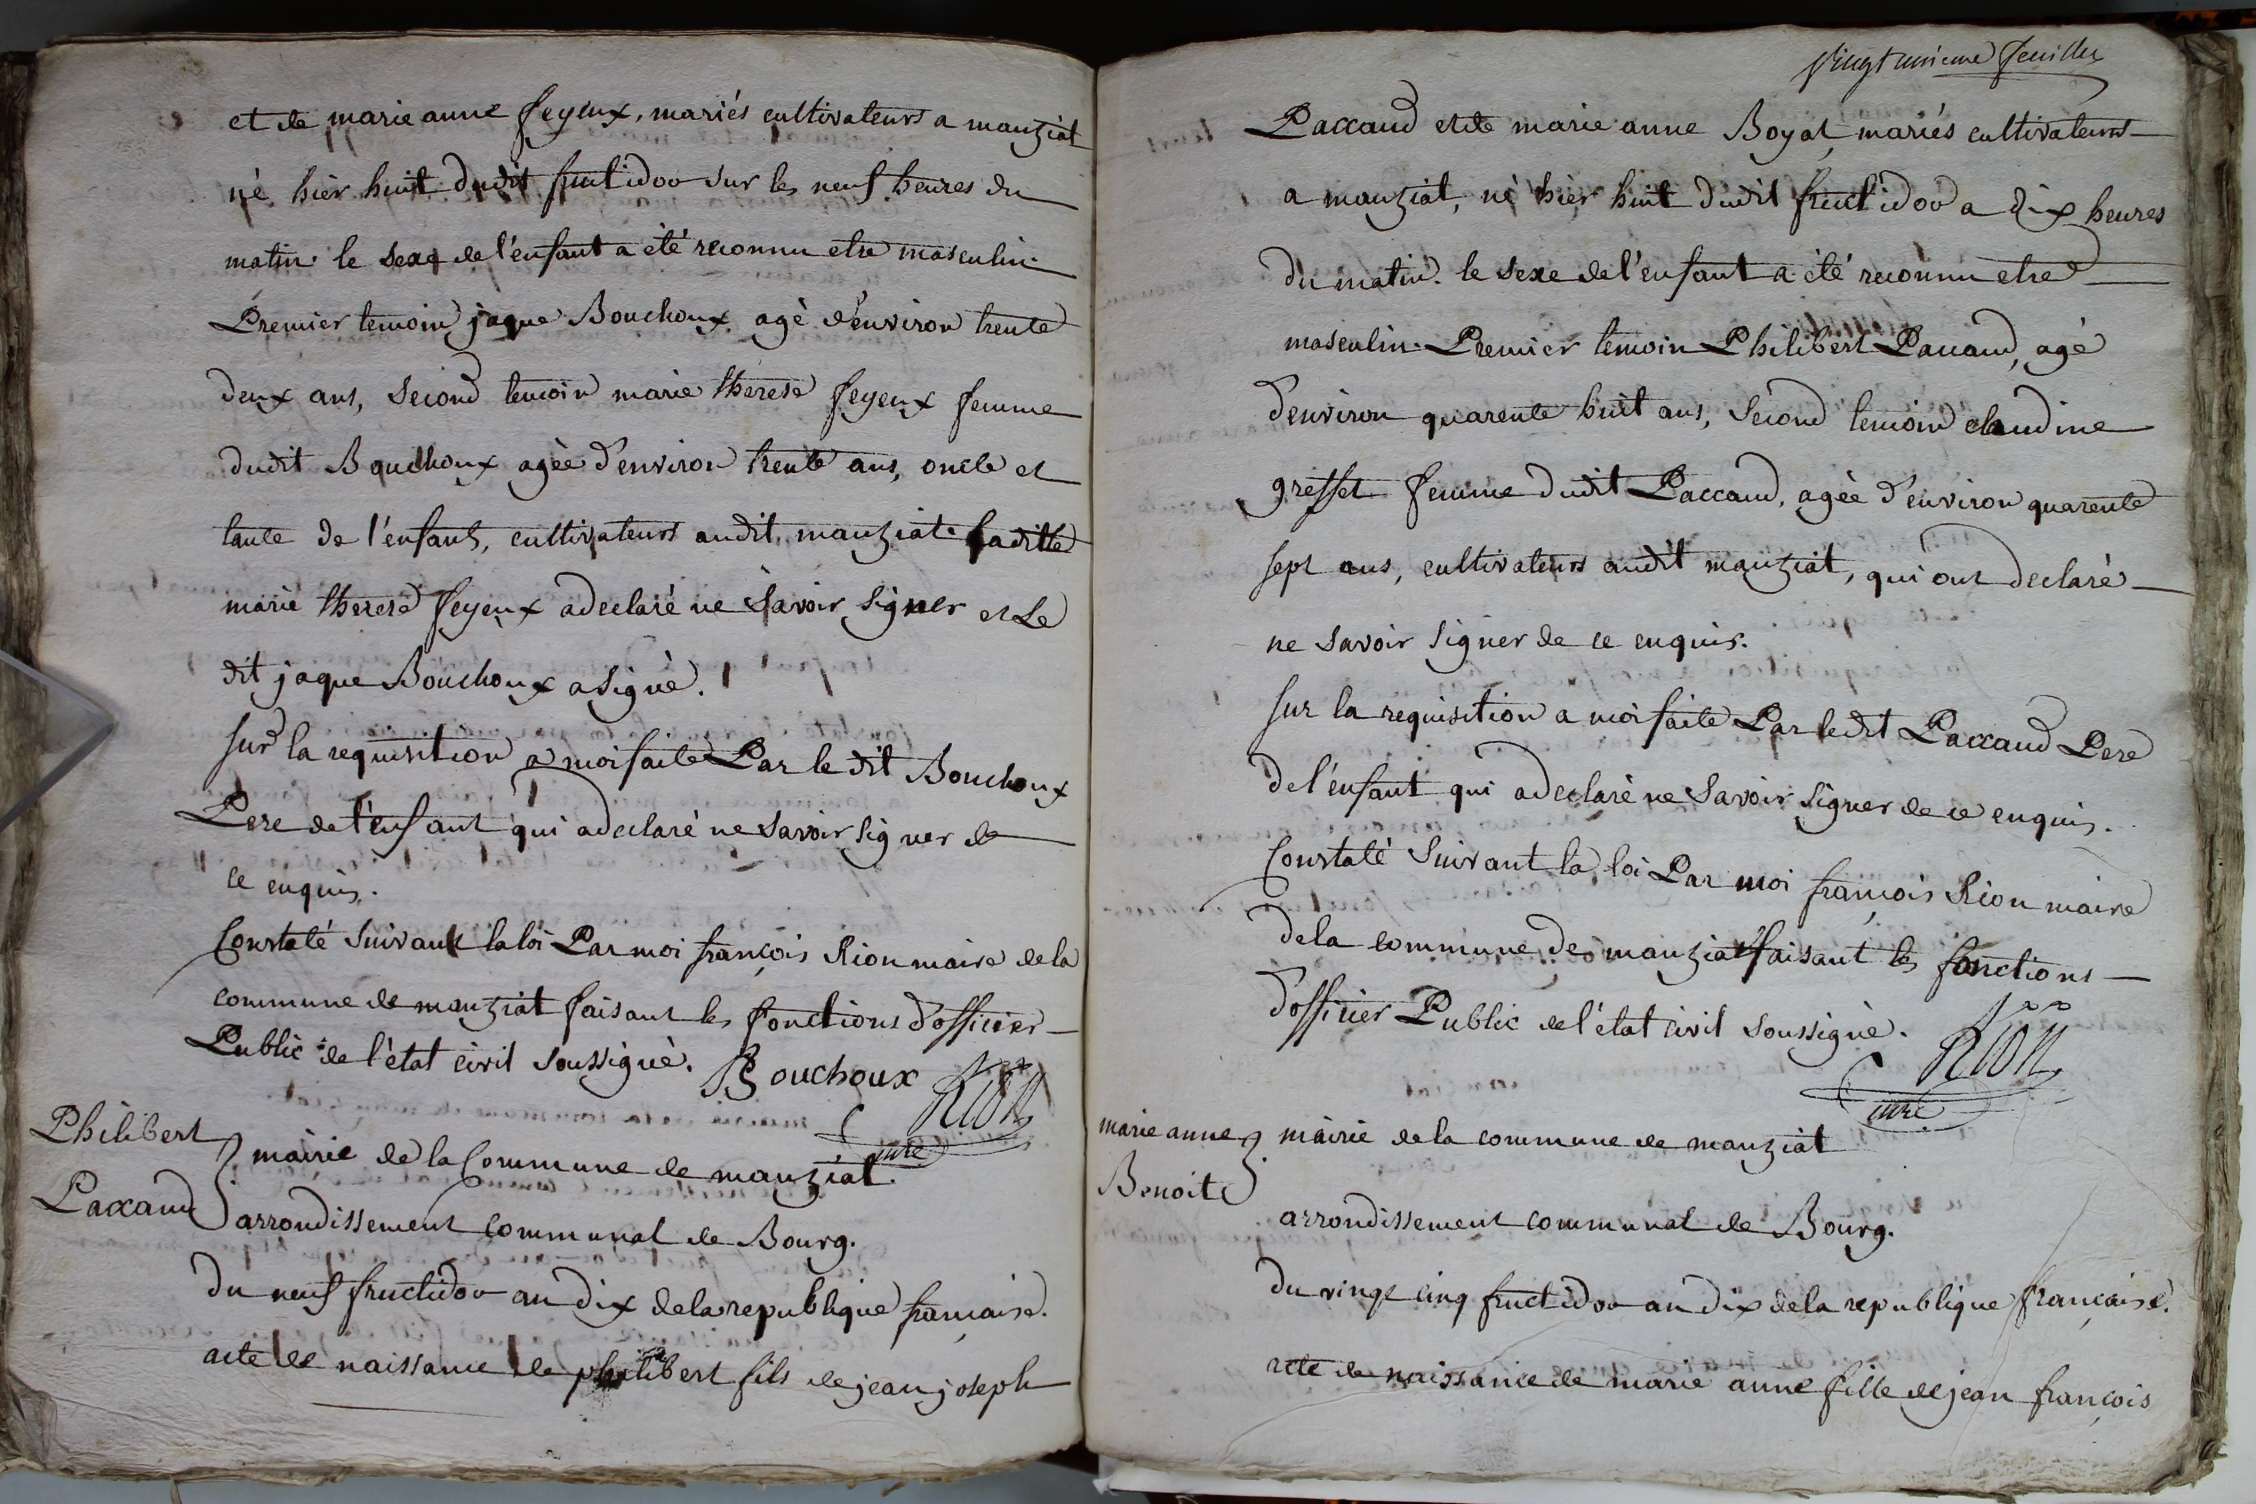 et de marie anne feyeux, mariés cultivateurs a manziat
né hier huit dudit fructidor sur les neuf heures du
matin. le sexe de l'enfant a été reconnu etre masculin.
Premier temoin jaque Bouchoux agè d'environ trente
deux ans, second temoin marie therese feyeux femme
dudit Bouchoux agèe d'environ trente ans, oncle et
tante de l'enfant, cultivateurs audit manziat. laditte
marie therese feyeux a declaré ne savoir signer et le
dit jaque Bouchoux a signè.
sur la requisition a moi faite Par le dit Bouchoux
Pere de l'enfant qui a declaré ne savoir signer de
ce enquis.
Constaté suivant la loi Par moi françois Rion maire de la
commune de manziat faisant les fonctions d'officier
Public de l'ètat civil soussignè. Bouchoux Rion
mre
Philibert
Paccaud
mairie de la Commune de manziat.
arrondissement communal de Bourg.
du neuf fructidor an dix de la republique française.
acte de naissance de philibert fils de jean joseph
vingt unieme feuillet
Paccaud et de marie anne Boyat, mariés cultivateurs
a manziat, né hier huit dudit fructidor a dix heures
du matin. le sexe de l'enfant a été reconnu etre
masculin. Premier temoin Philibert Paccaud, agè
d'environ quarente huit ans, second temoin claudine
gresset femme dudit Paccaud, agèe d'environ quarente
sept ans, cultivateurs audit manziat, qui ont declaré
ne savoir signer de ce enquis.
sur la requisition a moi faite Par ledit Paccaud Pere
de l'enfant qui a declaré ne savoir signer de ce enquis.
Constaté suivant la loi Par moi françois Rion maire
de la commune de manziat faisant les fonctions
d'officier Public de l'ètat civil soussignè.
Rion
mre
marie anne
Benoit
mairie de la commune de manziat
arrondissement communal de Bourg.
du vingt cinq fructidor an dix de la republique française.
acte de naissance de marie anne fille de jean françois